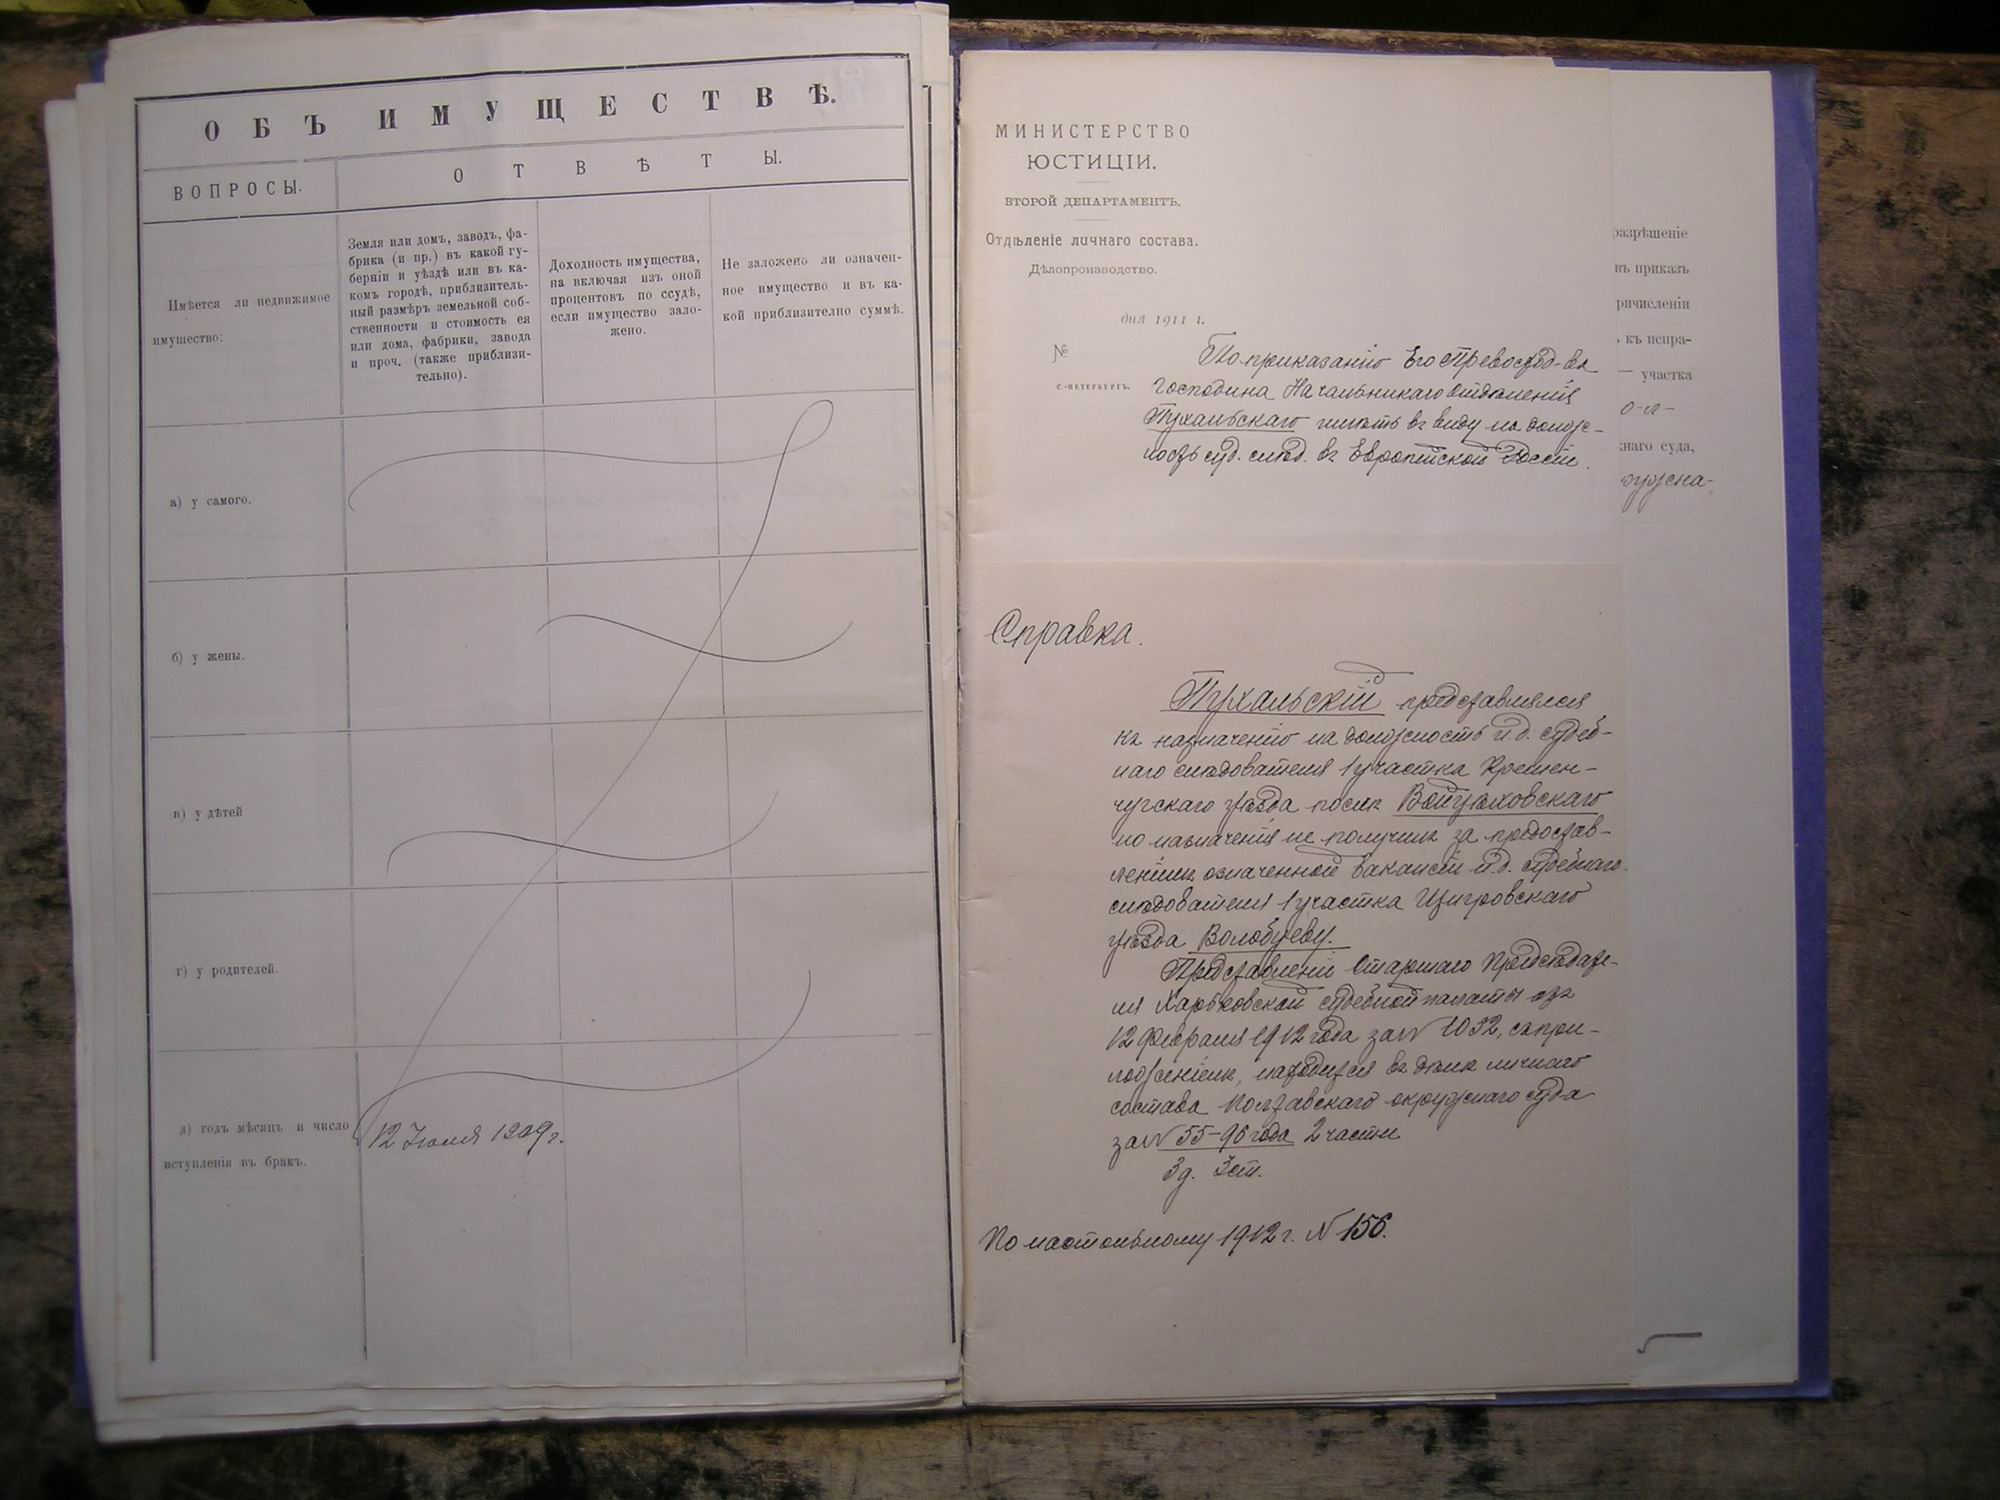 ОБЪ ИМУЩЕСТВѢ.
ВОПРОСЫ.
ОТВѢТЫ.
Имѣется ли недвижимое
имущество:
Земля или домъ, заводъ, фа-
брика (и пр.) въ какой гу-
берніи и уѣздѣ или въ ка-
комъ городѣ, приблизитель-
ный размѣръ земельной соб-
ственности и стоимость ея
или дома, фабрики, завода
и проч. (также приблизи-
тельно).
Доходность имущества,
на включая изъ оной
процентовъ по ссудѣ,
если имущество зало-
жено.
Не заложено ли означен-
ное имущество и въ ка-
кой приблизително суммѣ.
а) у самого.
б) у жены.
в) у дѣтей
г) у родителей.
д) годъ мѣсяцъ и число
вступленія въ бракъ.
12 Іюля 1909 г.
МИНИСТЕРСТВО
ЮСТИЦІИ.
ВТОРОЙ ДЕПАРТАМЕНТЪ.
Отдѣленіе личнаго состава.
Дѣлопроизводство.
дня 1911 г.
№
С.-ПЕТЕРБУРГЪ.
По приказанію Его Превосход-ва
Господина Начальника Отдѣленія
Пухальскаго имѣть въ виду на долж-
ность суд. слѣд. въ Европейской Россіи.
Справка.
Пухальскій представлялся
къ назначенію на должность и.д. судеб-
наго слѣдователя 1 участка Кремен-
чугскаго уѣзда послѣ Войцѣховскаго
но назначенія не получилъ за предостав-
леніемъ означенной вакансіи и.д. судебнаго
слѣдователя 1 участка Щигровскаго
уѣзда Волобуеву.
Представленіе Старшаго Предсѣдате-
ля Харьковской судебной палаты отъ
12 Февраля 1912 года за № 1032, съ при-
ложеніемъ, находится въ дѣлѣ личнаго
состава Полтавскаго окружнаго суда
за № 55-96 года 2 части
3 д. 3 ст.
По настольному 1912 г. № 156.
разрѣшеніе
въ приказъ
ричисленіи
ъ къ испра-
— участка
о-л-
наго суда,
оружна-